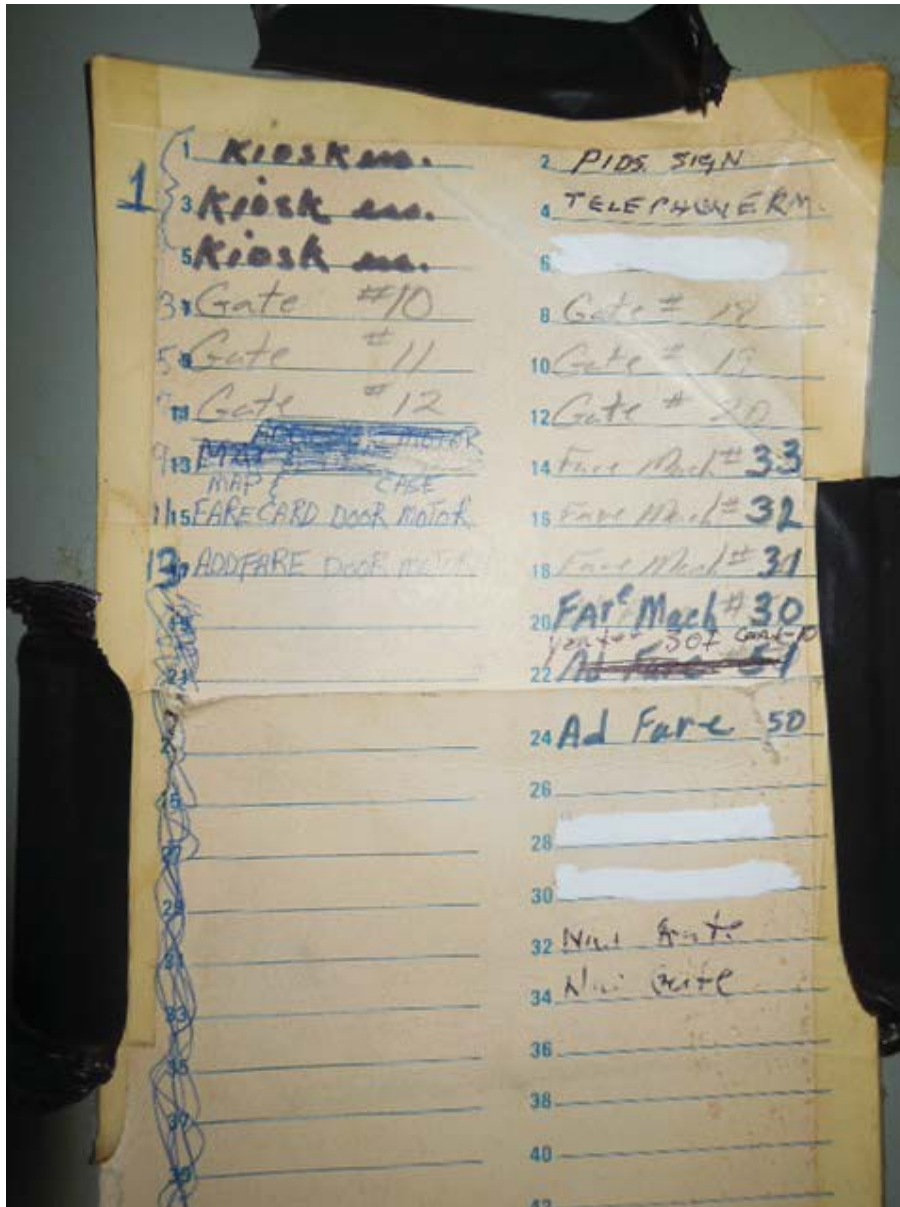 1
1 Kiosk
3 Kiosk
5 Kiosk
3 7 Gate #10
5 9 Gate #11
11 Gate #12
MOTOR
9 13
MAP CASE
11 15 FARECARD DOOR MOTOR
13 17 ADDFARE DOOR MOTOR
19
21
27
29
31
33
35
37
39
2 PIDS. SIGN
4 TELEPHONE RM.
6
8 Gate #
10 Gate # 19
12 Gate # 20
14 Fare Mach # 33
16 Fare Mach # 32
18 Fare Mach # 31
20 FAre Mach # 30
22 Ad Fare 51
24 Ad Fare 50
26
28
30
32 Gate
34 Gate
36
38
40
42